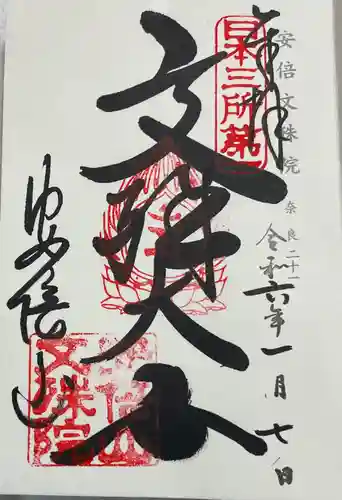 奉拝
安倍文殊院
奈良二十一
令和六年一月七日
日本三所第一
文殊大士
安倍山
文殊院